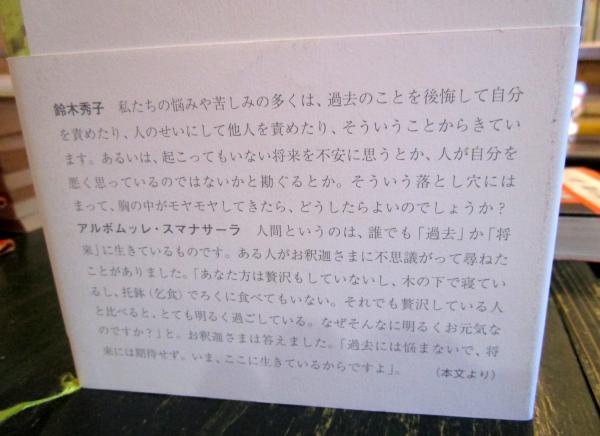 鈴木秀子 私たちの悩みや苦しみの多くは、過去のことを後悔して自分
を責めたり、人のせいにして他人を責めたり、そういうことからきてい
ます。あるいは、起こってもいない将来を不安に思うとか、人が自分を
悪く思っているのではないかと勘ぐるとか。そういう落とし穴には
まって、胸の中がモヤモヤしてきたら、どうしたらよいのでしょうか？
アルボムッレ・スマナサーラ 人間というのは、誰でも「過去」か「将
来」に生きているものです。ある人がお釈迦さまに不思議がって尋ねた
ことがありました。「あなた方は贅沢もしていないし、木の下で寝てい
るし、托鉢（乞食）でろくに食べてもいない。それでも贅沢している人
と比べると、とても明るく過ごしている。なぜそんなに明るくお元気な
のですか？」と。お釈迦さまは答えました。「過去には悩まないで、将
来には期待せず。いま、ここに生きているからですよ」。 （本文より）